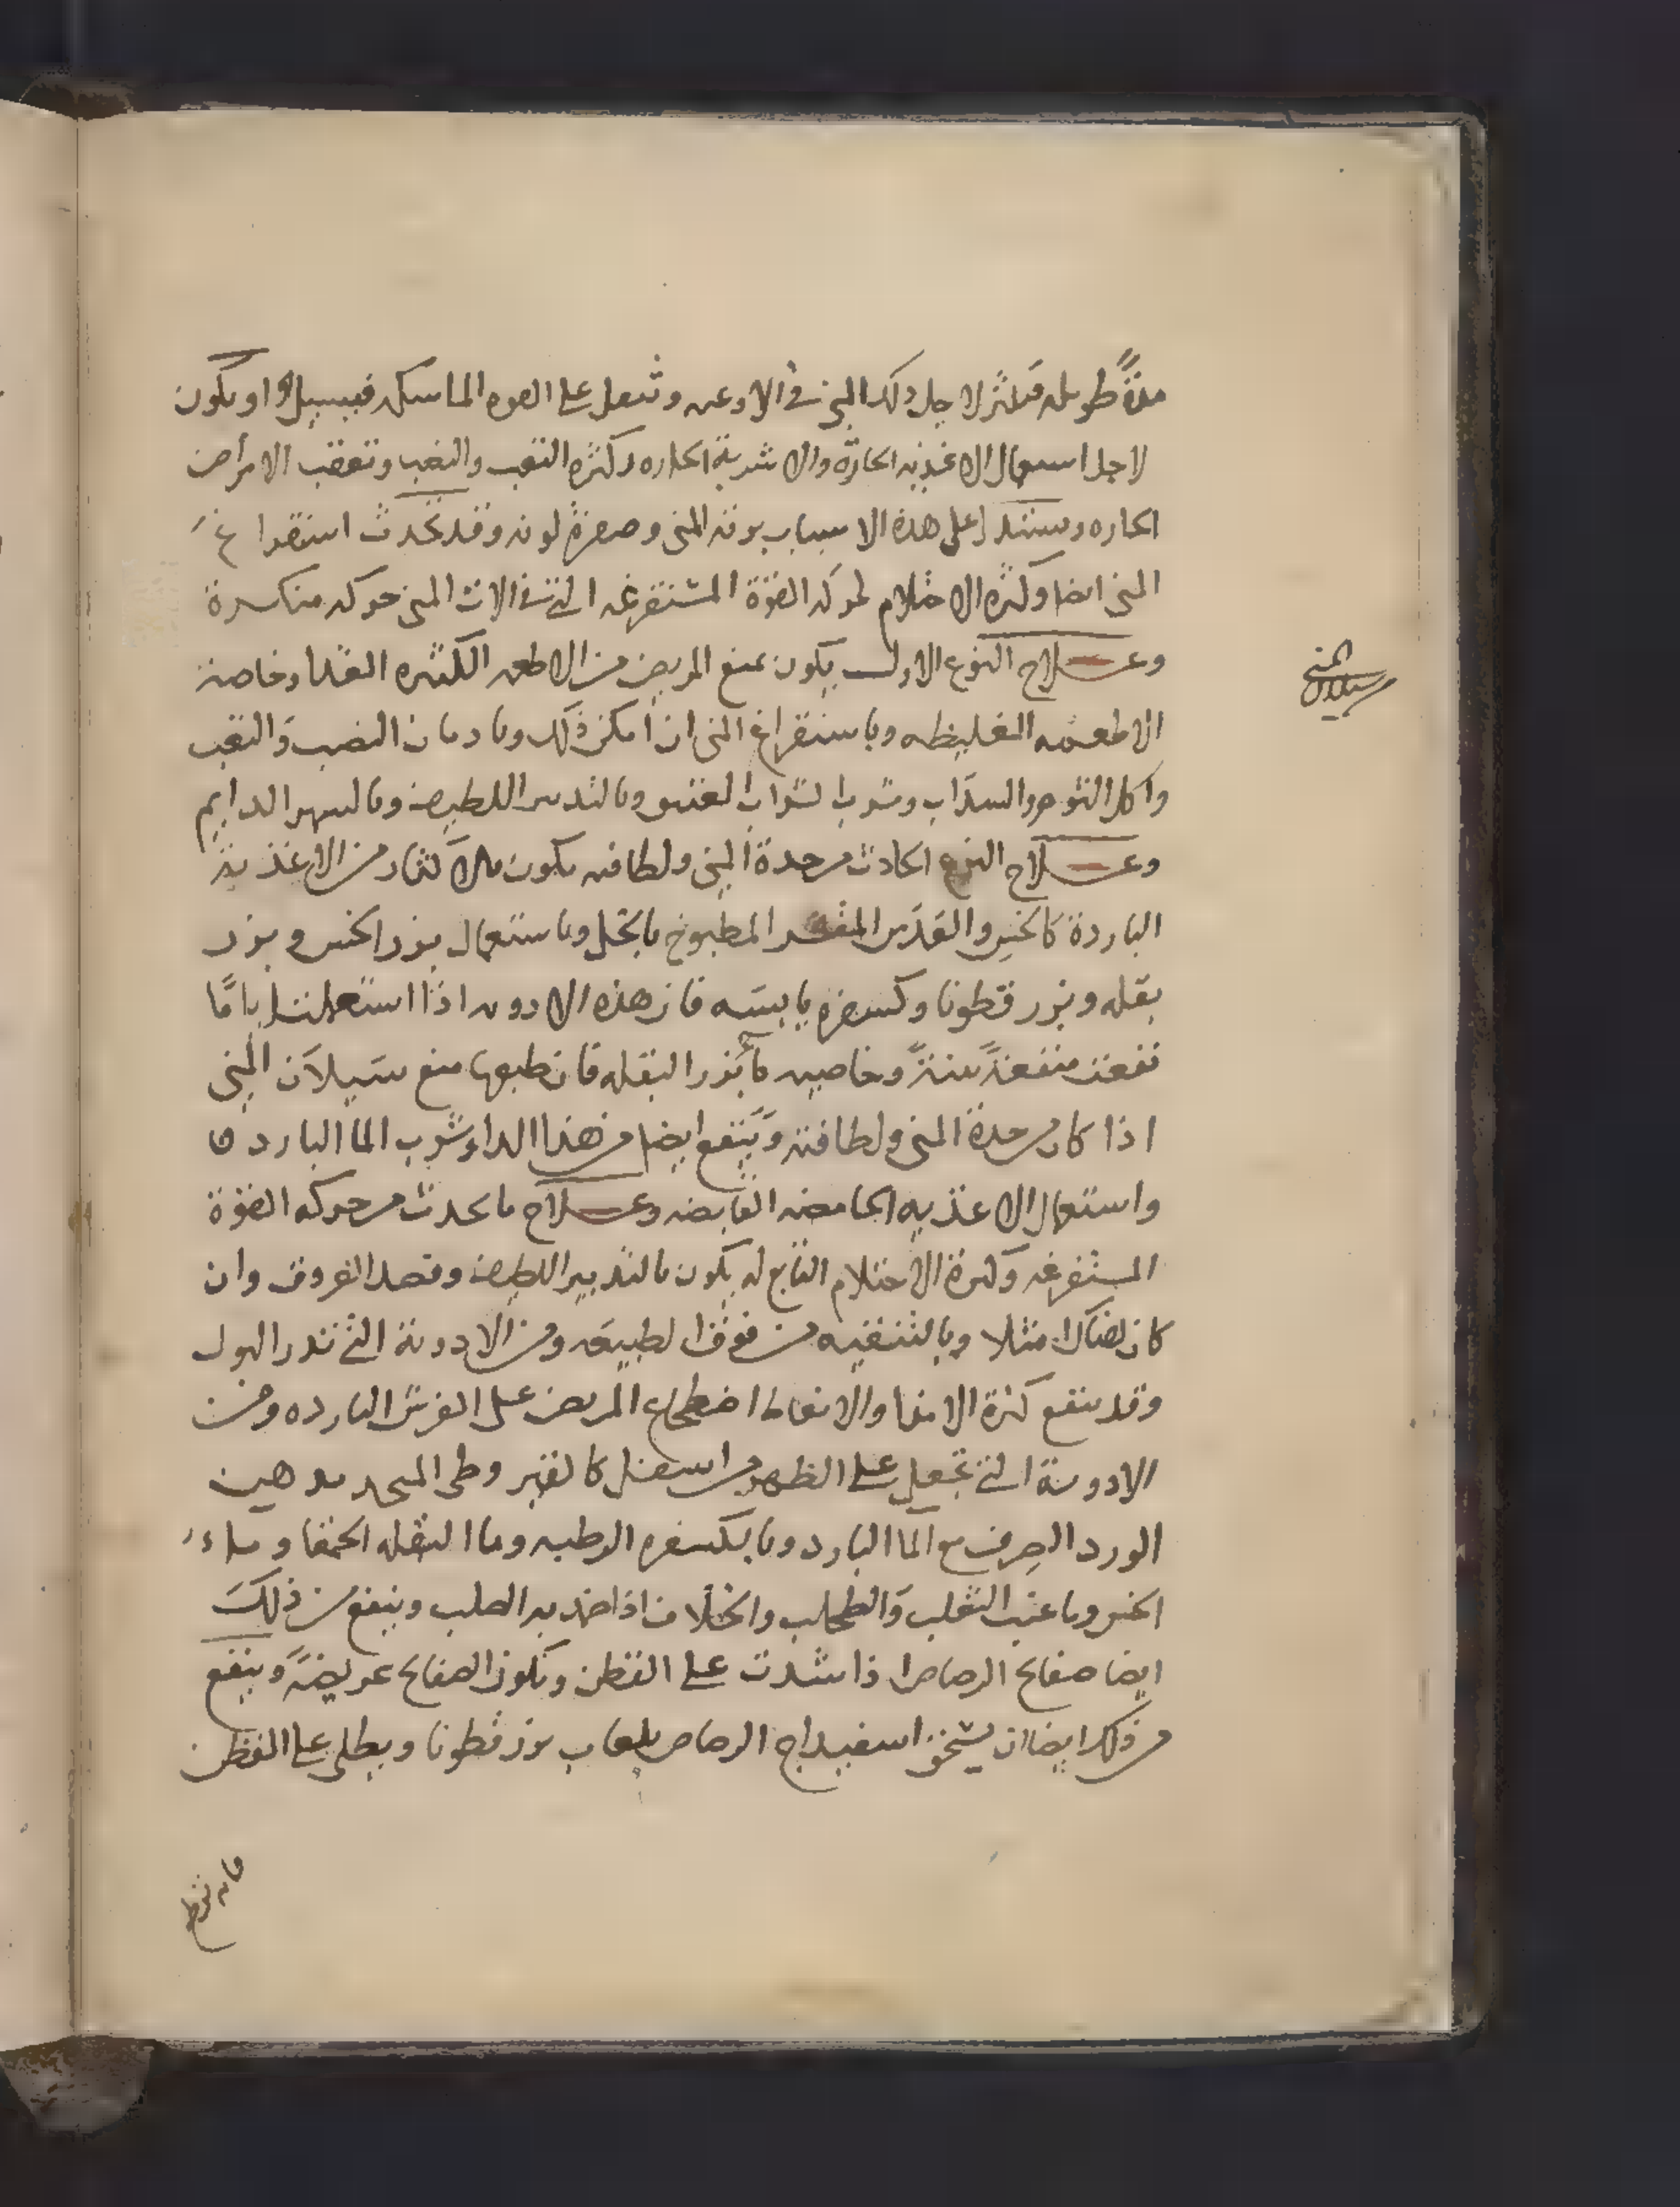 مدةً طويله فيكثر لاجل ذلك المني في الاوعيه وتثقل على القوه الماسكه فيسيل او يكون
لاجل استعمال الاغذيه الحارة والاشربة الحاره وكثره التعب والنصب وتعقب الامراض
الحاره ويستدل على هذه الاسباب برقة المني وصفرة لونه وقد يحدث استفراغ
المني ايضا وكثره الاحتلام لحركه القوة المستفرغه التي في الات المني حركه منكسرة
وعلاج النوع الاول يكون بمنع المريض من الاطعمه الكثيره الغذا وخاصة
سيلان المني
الاطعمه الغليظه وباستفراغ المني ان امكن ذلك وبادمان النصب والتعب
واكل الثوم والسذاب وشرب الشراب العتيق وبالتدبير اللطيف وبالسهر الدايم
وعلاج النوع الحادث من حدة المني ولطافته يكون بالاكثار من الاغذية
الباردة كالخس والعدس المقشر المطبوخ بالخل وباستعمال بزر الخس وبزر
بقله وبزر قطونا وكسفره يابسه فان هذه الادويه اذا استعملت اياما
نفعت منفعة بينة وخاصيه بزر البقله فان طبعها منع سيلان المني
اذا كان من حدة المني ولطافته وينفع ايضا من هذا الداء شرب الما البارد
واستعمال الاغذيه الحامضه القابضه وعلاج ما يحدث من حركه القوة
المستفرغه وكثرة الاحتلام التابع له يكون بالتدبير اللطيف وفصد العروق وان
كان هناك امتلا وبالتنقيه من فوق الطبيعه ومن الادوية التي تدر البول
وقد ينفع كثرة الامذا والانعاظ اضطجاع المريض على الفرش البارده ومن
الادوية التي تجعل على الظهر من اسفل كالقير وطى المتخد بدهن
الورد الصرف مع الما البارد وبالكسفره الرطبه وما البقله الحمقا وماء
الخس وما عنب الثعلب والطحلب والخلاف اذا ضمد به الصلب وينفع من ذلك
ايضا صفايح الرصاص اذا شدت على القطن وتكون الصفايح عريضة وينفع
من ذلك ايضا ان يسحق اسفيداج الرصاص بلعاب بزر قطونا ويطلى على القطن